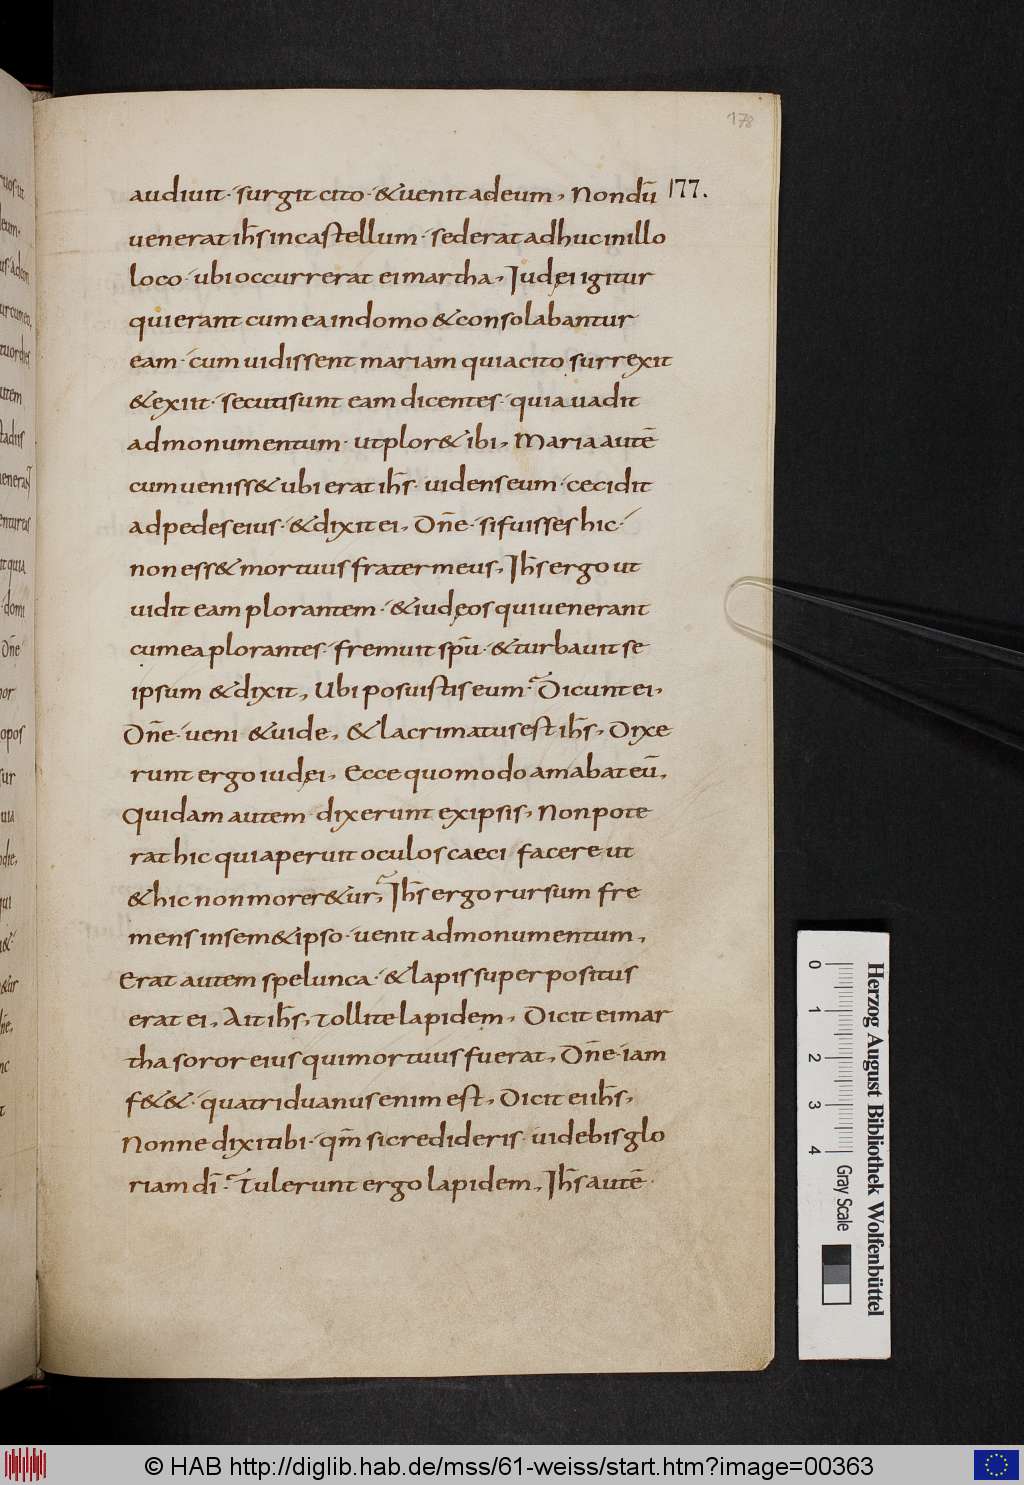 178
audiuit · surgit cito · & uenit ad eum , Nondū 177.
uenerat ih̄s in castellum · sederat adhuc in illo
loco · ubi occurrerat ei martha , Iudęi igitur
qui erant cum ea in domo & consolabantur
eam · cum uidissent mariam quia cito surrexit
& exiit · secuti sunt eam dicentes · quia uadit
ad monumentum · ut plor& ibi , Maria autē
cum ueniss& ubi erat ih̄s · uidens eum · cecidit
ad pedes eius · & dixit ei , Dn̄e · si fuisses hic ·
non ess& mortuus frater meus , Ih̄s ergo ut
uidit eam plorantem · & iudęos qui uenerant
cum ea plorantes · fremuit sp̄u · & turbauit se
ipsum & dixit , Ubi posuistis eum · Dicunt ei ,
Dn̄e · ueni & uide , & lacrimatus est ih̄s , Dixe
runt ergo iudęi , Ecce quomodo amabat eū ,
Quidam autem · dixerunt ex ipsis , Non pote
rat hic qui aperuit oculos caeci facere ut
& hic non morer&ur , Ih̄s ergo rursum fre
mens in sem&ipso · uenit ad monumentum ,
Erat autem spelunca · & lapis superpositus
erat ei , Ait ih̄s , Tollite lapidem , Dicit ei mar
tha soror eius qui mortuus fuerat , Dn̄e · iam
f&& · quatriduanus enim est , Dicit ei ih̄s ,
Nonne dixi tibi · qm̄ si credideris · uidebis glo
riam dī · Tulerunt ergo lapidem , Ih̄s autē ·
0 1 2 3 4
Gray Scale
Herzog August Bibliothek Wolfenbüttel
© HAB http://diglib.hab.de/mss/61-weiss/start.htm?image=00363